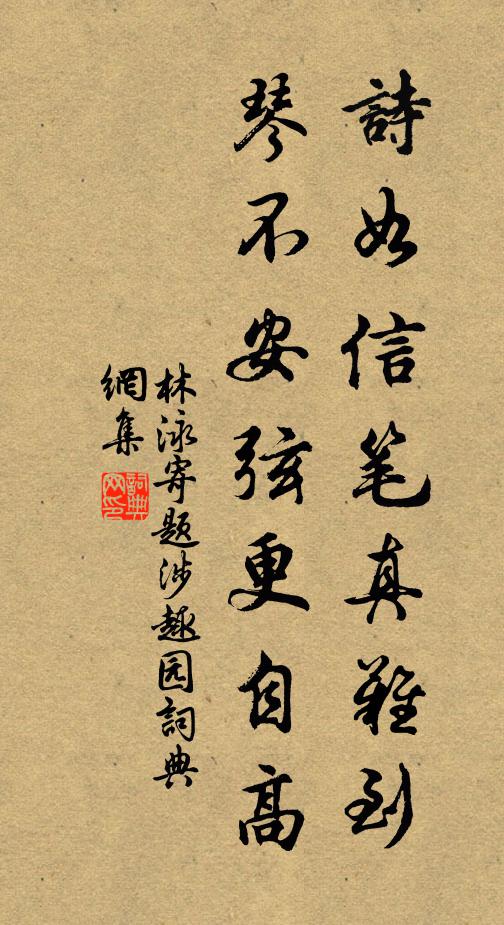 詩如信笔真難到
琴不安弦更自高
林泳寄题涉趣园詞典
網集
詞典網印